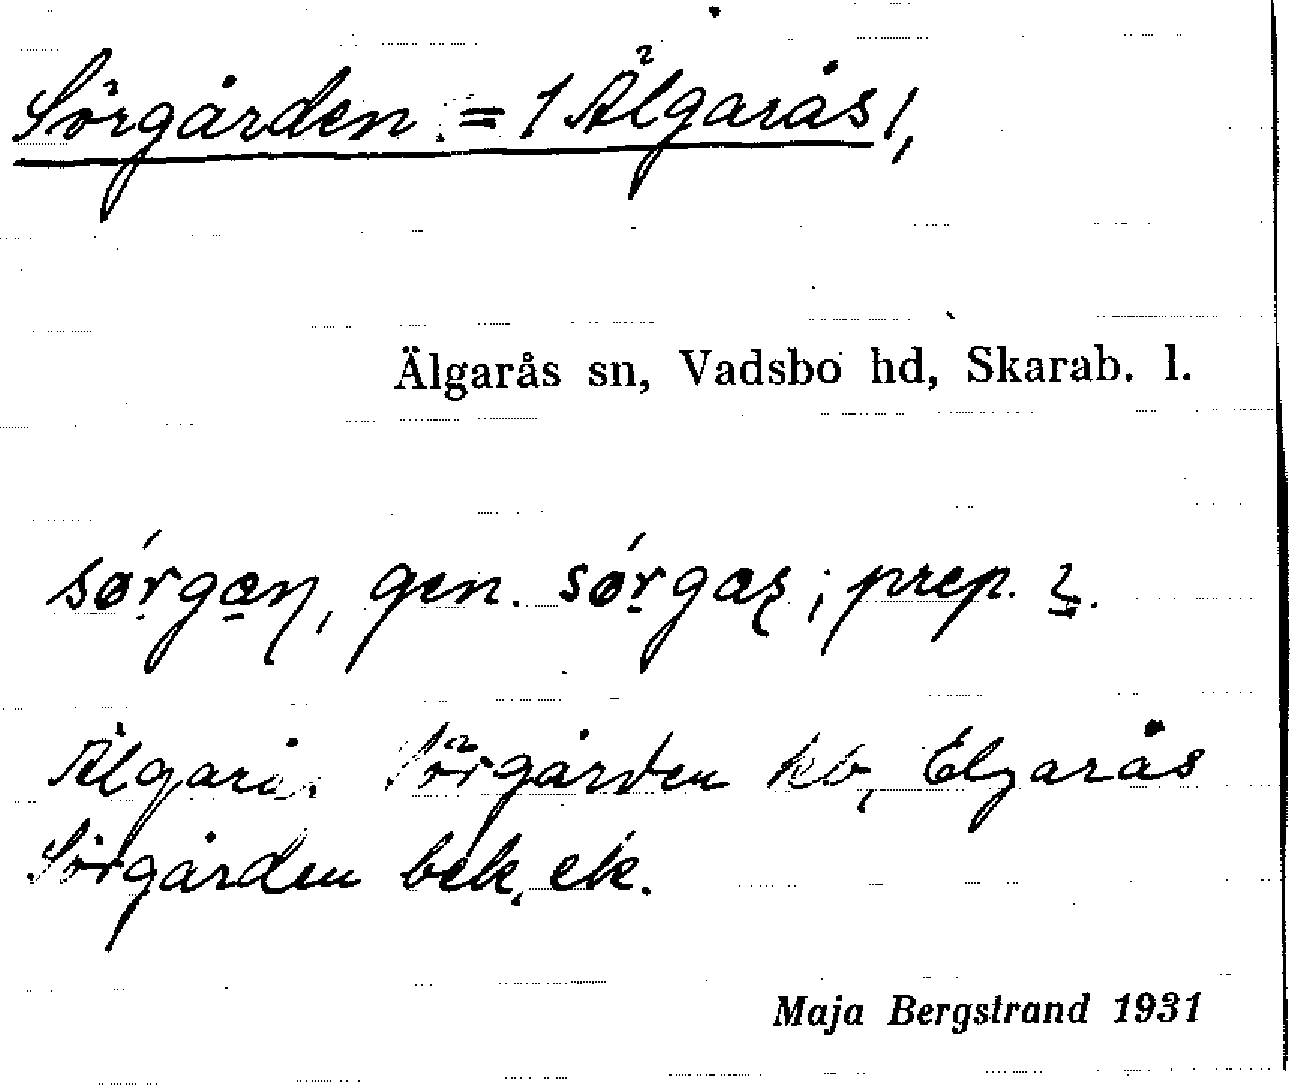 Sörgården = /Älgarås/,
Älgarås sn, Vadsbo hd, Skarab. l.
sǿrgæn, gen. sǿrgæs; prep.
Älgarås Sörgården kb, Elgarås
Sörgården bek, ek.
Maja Bergstrand 1931